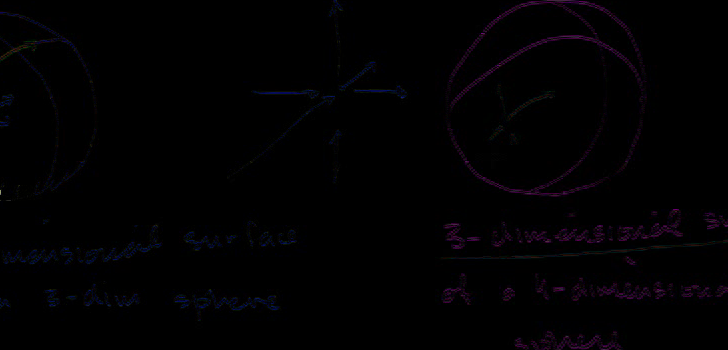 mensional surface
3-dim sphere
3-dimensional su
of a 4-dimensiona
sphere